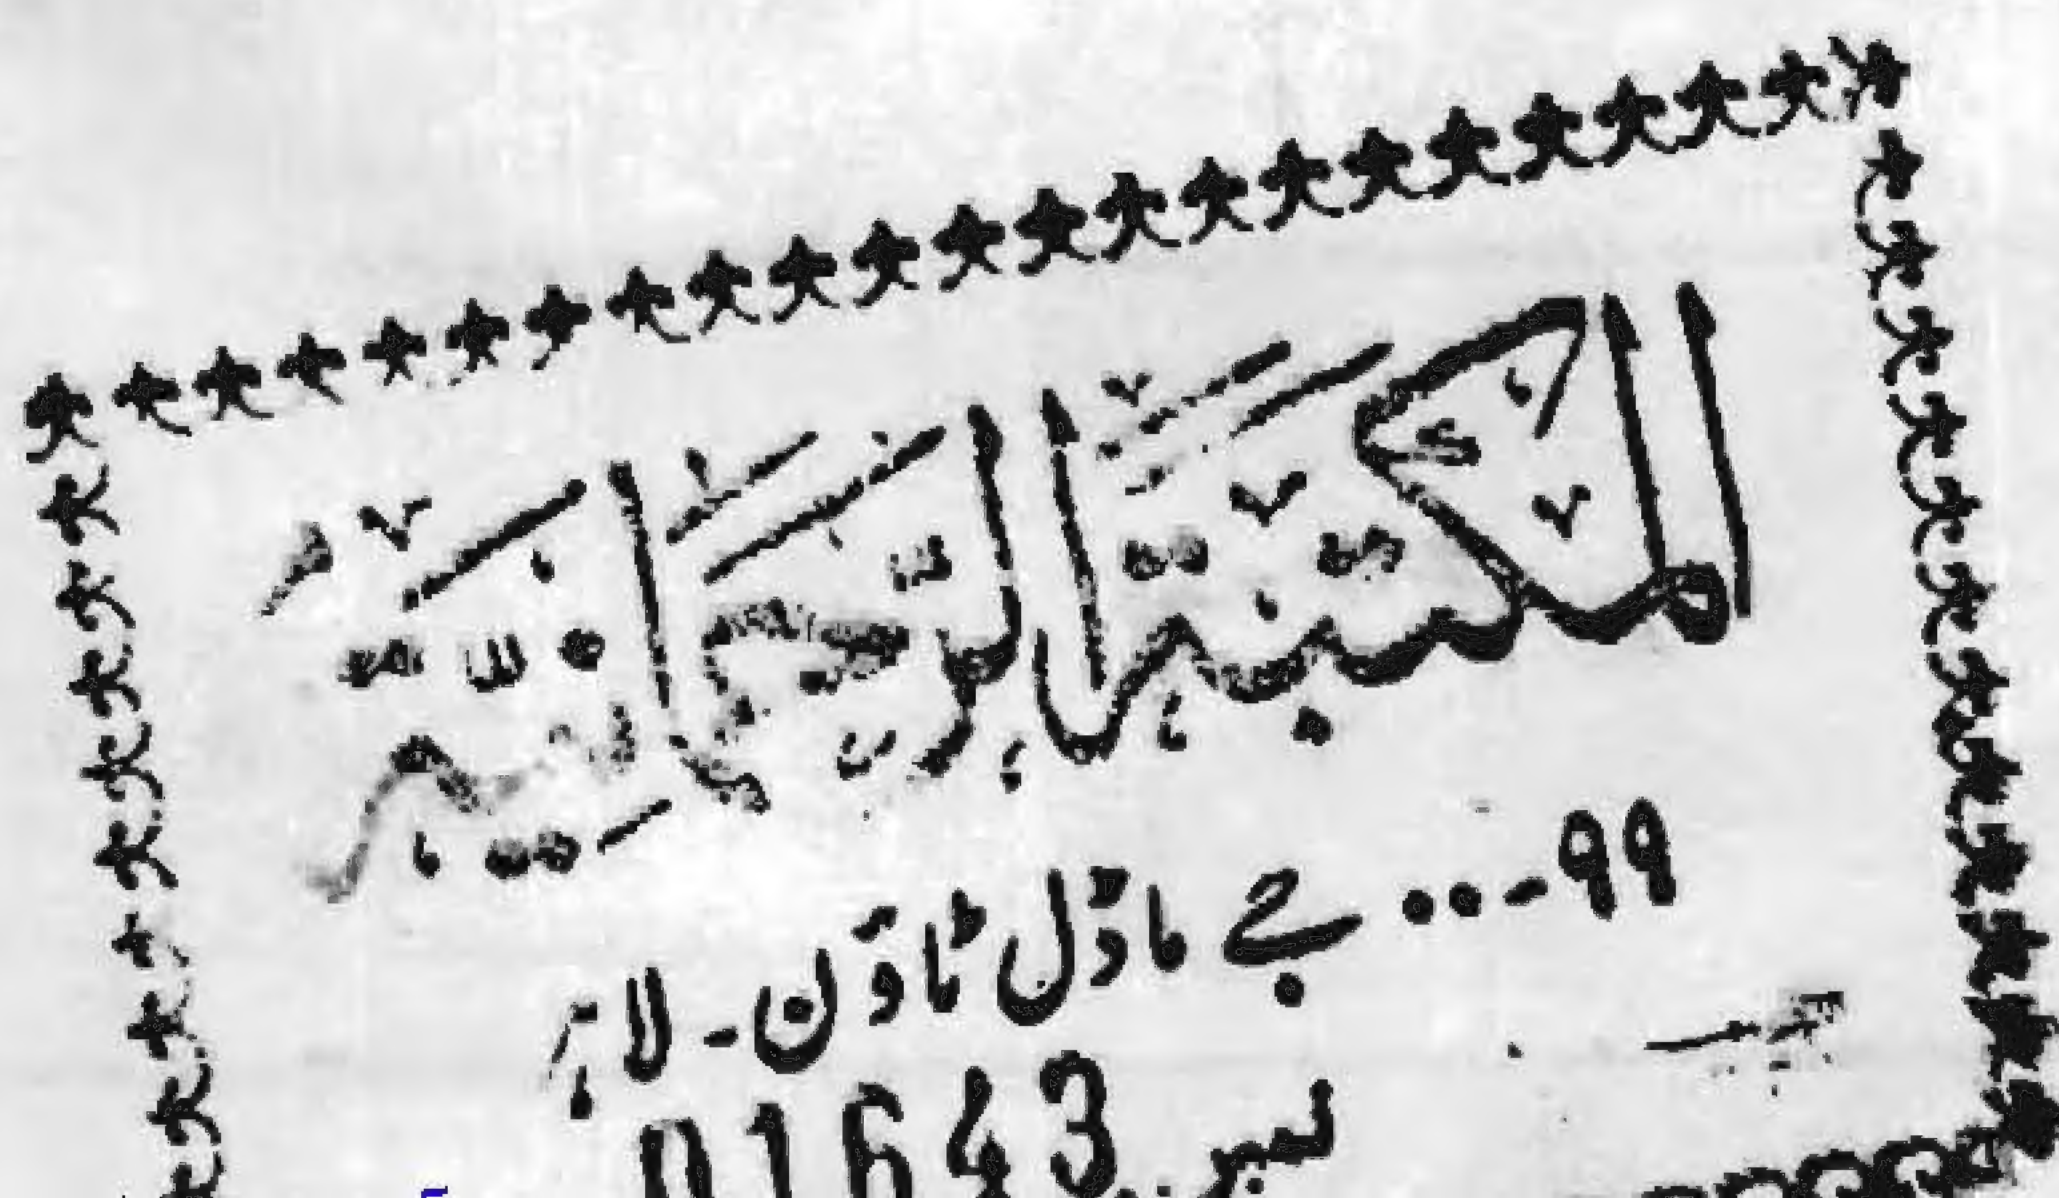 المکتبۃ الرحمانیۃ
۹۹-۰۰ جے ماڈل ٹاؤن - لاہور
نمبر 01643